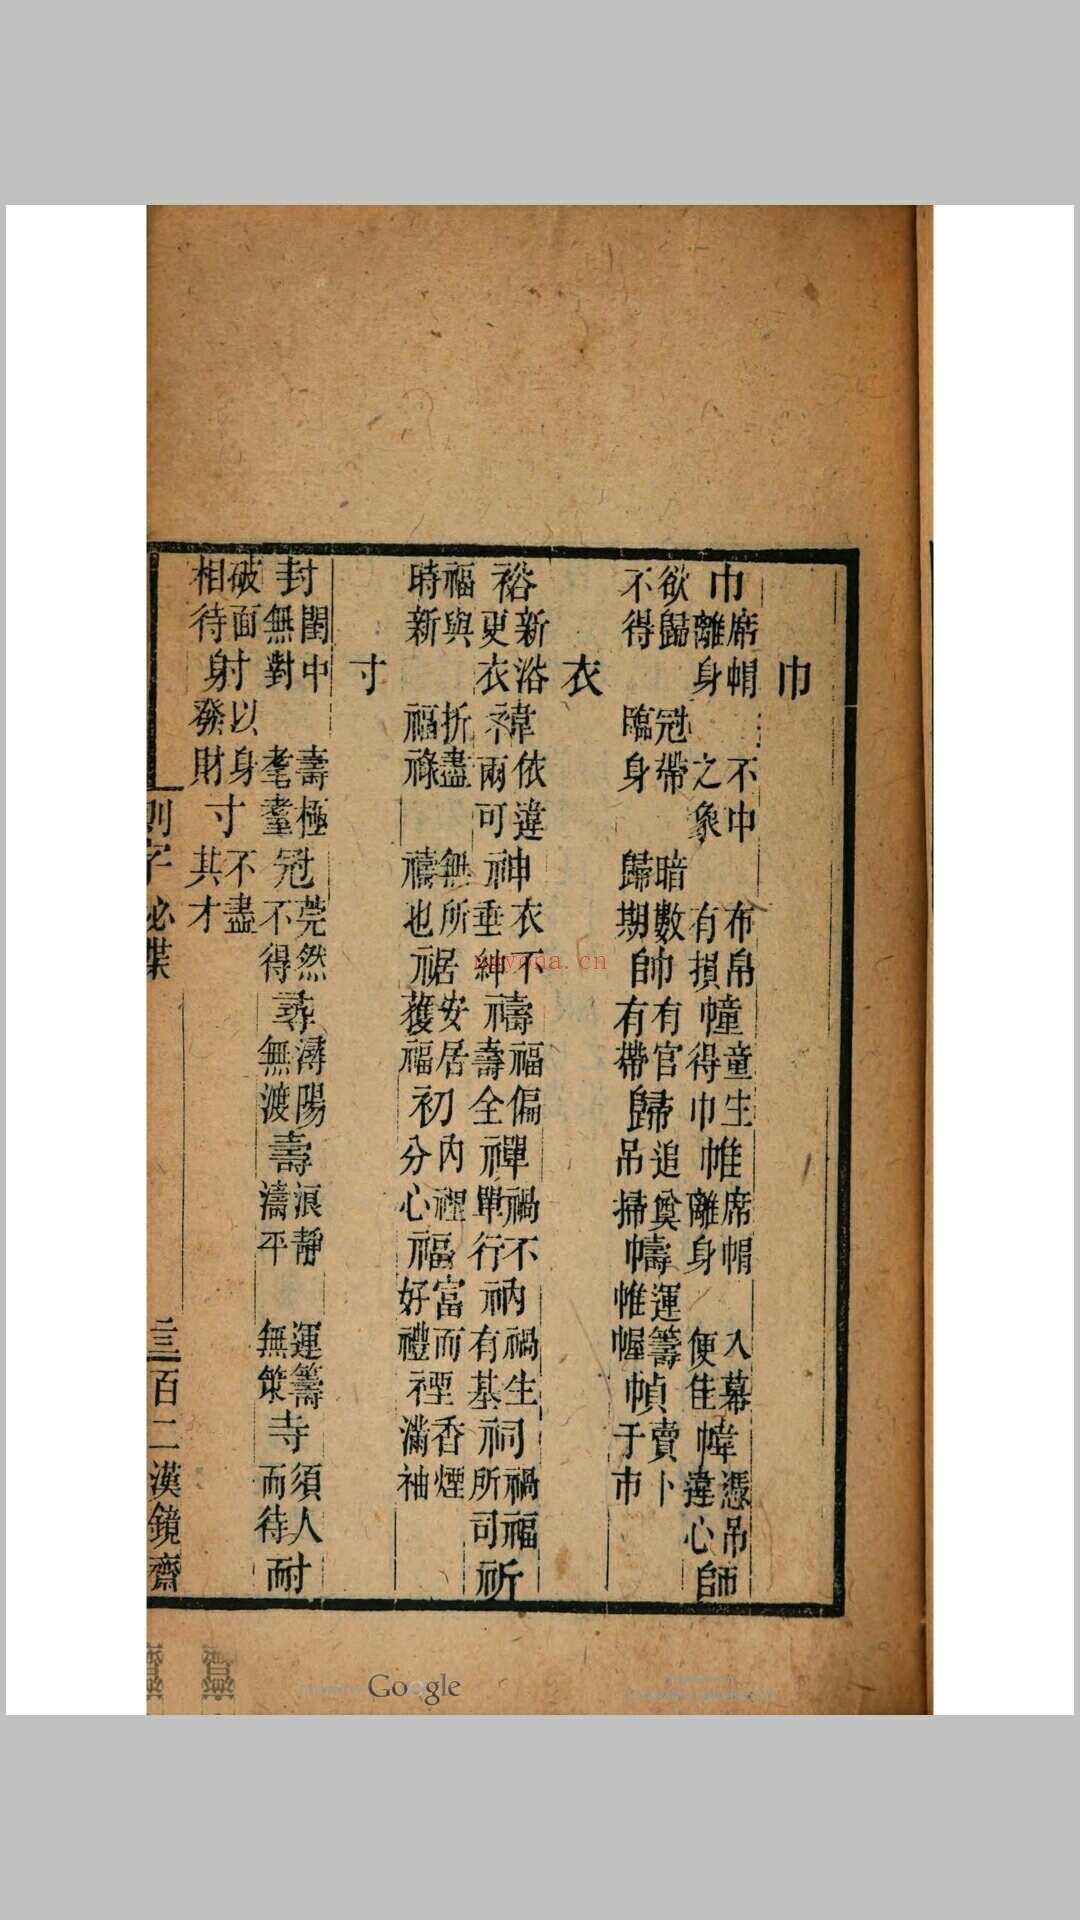 巾
巾席帽離身 不中之象 布帛有損幢童生得巾帷席帽離身 入幕便佳幃憑吊違心師
欲歸不得 冠帶臨身 暗數歸期帥有官有帶歸追奠吊掃幬運籌帷幄幀賣卜于市
衣
裕新浴更衣褘依違兩可神衣不垂紳禱福偏壽全禪禍不單行衲禍生有基祠禍福所司祈
福與時新 折盡福祿 無所禱也裾安居獲福初內裡分心福富而好禮禋香煙滿袖
寸
封閨中無對 壽極耄耋冠莞然不得尋潯陽無渡壽浪靜濤平 運籌無策寺須人而待耐
破面相待射以身發財寸不盡其才
測字秘牒 三百二 漢鏡齋
nayona.cn
Google